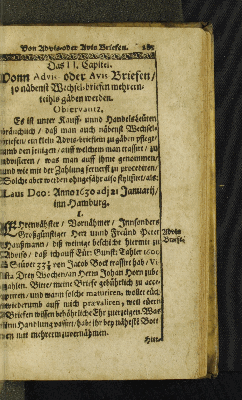 Von Advis-oder Avis Briefen. 185
Das II. Capitel.
Vonn Advis oder Avis Briefen/
so näbenst Wechsel-briefen mehrern-
theils gäben werden.
Observantz.
Es ist unter Kauff- und Handelsleüten
bräuchlich / daß man auch näbenst Wechsel-
briefen / ein klein Advis-brieflein zu gäben pflegt /
und den jenigen / auff welchem man trassirt / zu
advisieren / was man auff ihme genommen /
und wie mit der Zahlung fernerst zu procediren /
Solche aber werden ohngefähr also stylisirt / als:
Laus Deo: Anno 1630 adi 21 Januarij /
inn Hamburg.
I.
EHrenvähster / Vornähmer / Innsonders
Großgünstiger Herr unnd Freünd Peter
Haußmann / diß wenige beschicht hiermit zu
Advis / daß ich auff Eür Gunst: Tahler 1600
à Stüver 33½ von Jacob Bock trassirt hab / Vi-
sta. Drey Wochen / an Herrn Johan Horn zube-
zahlen. Bitte / meine Briefe gebührlich zu acce-
ptieren / und wann solche maturiren, wollet eüch
wiederumb auff mich prævaliren, weil eüere
Briefen wissen bebährliche Ehr zuerzeigen. Was
inn Handlung passirt / habt ihr bey nähest Bott-
en mit mehrerm zuvernähmen.
Hier-
Advis
Briefe.